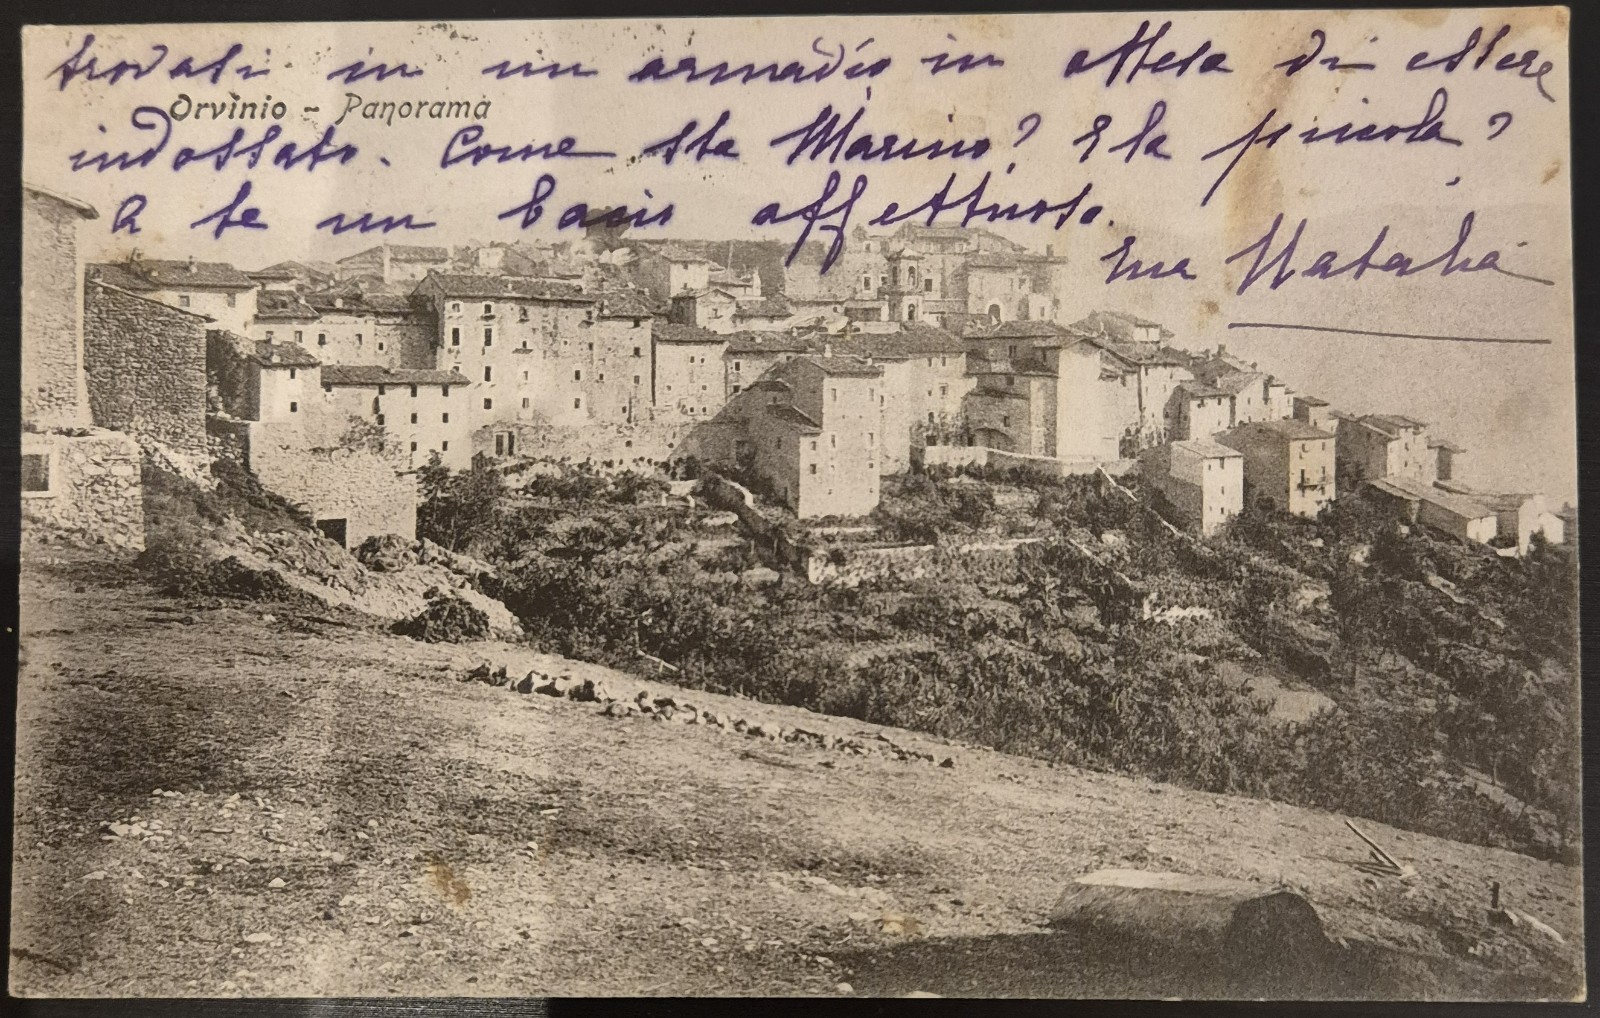 trovati in un armadio in attesa di essere
Orvinio - Panorama
indossato. Come sta Marino? E la piccola?
A te un bacio affettuoso.
tua Natalia